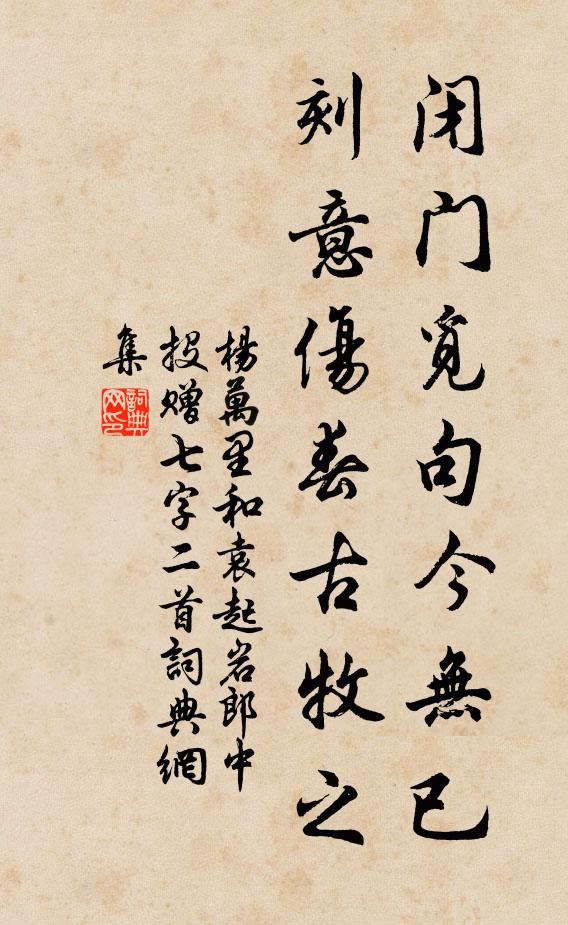 闭門覓句今無已
刻意傷春古牧之
楊萬里和袁起岩郎中
投贈七字二首詞典網
集
詞典
网印